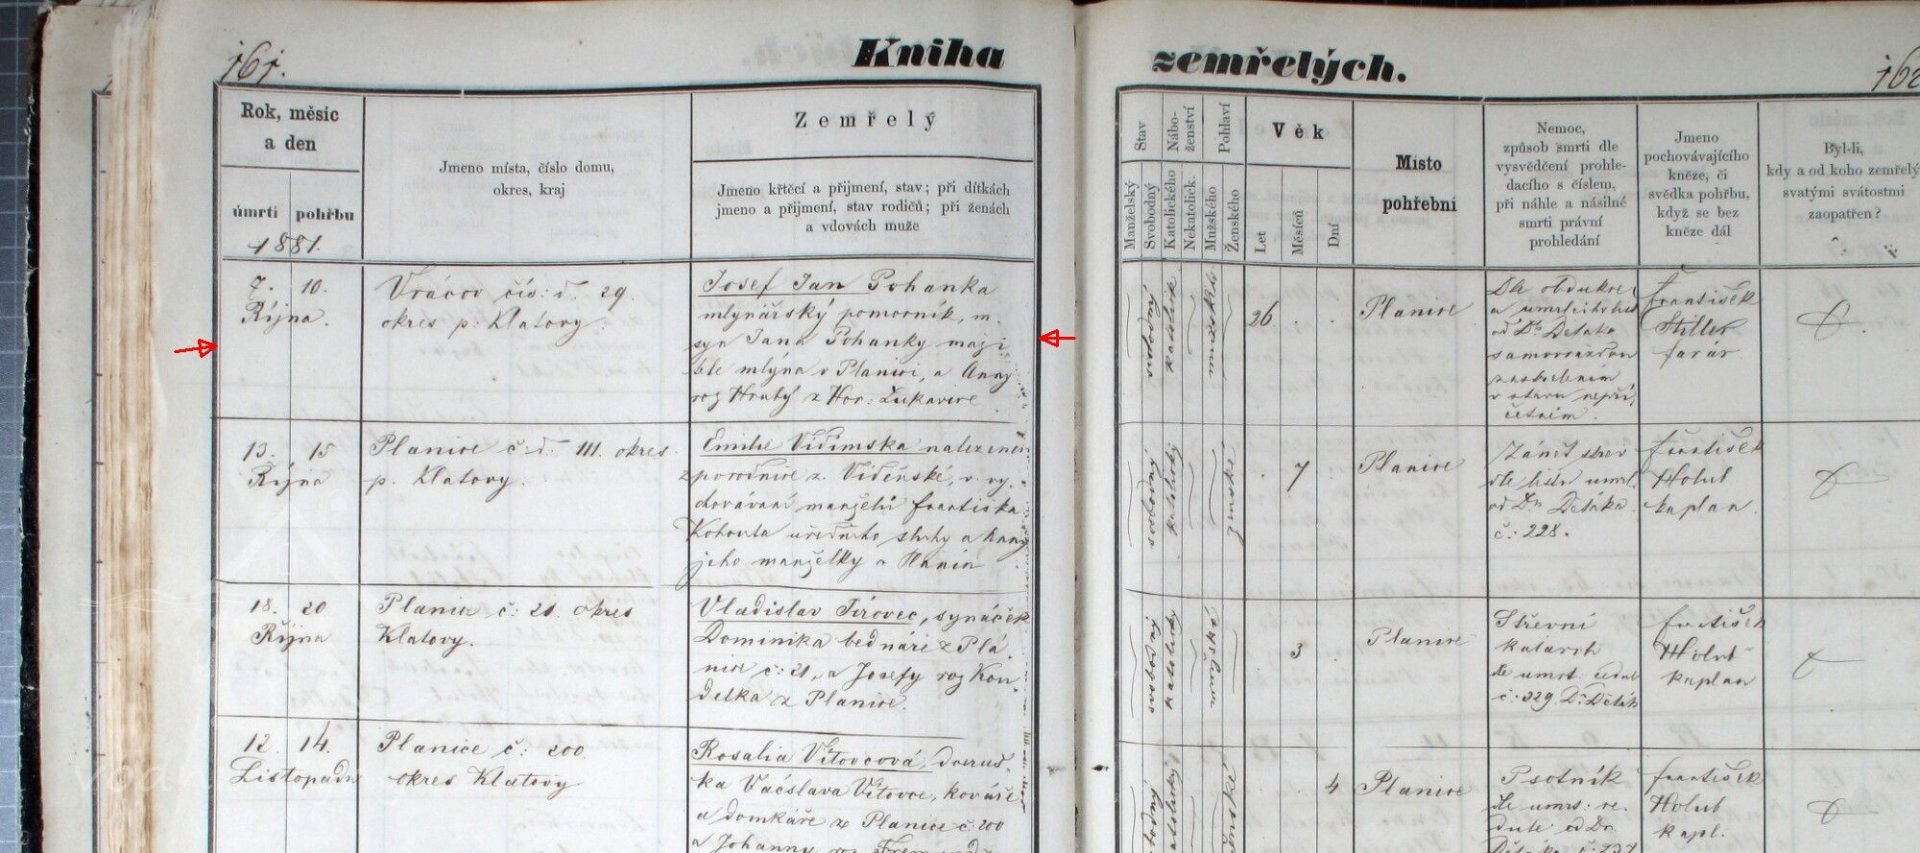 161.
Kniha
zemřelých.
162
Rok, měsíc
a den
úmrtí
pohřbu
1881.
Jmeno místa, číslo domu,
okres, kraj
Zemřelý
Jmeno křtěcí a přijmení, stav; při dítkách
jmeno a přijmení, stav rodičů; při ženách
a vdovách muže
Stav
Manželský
Svobodný
Nábo-
ženství
Katolického
Nekatolick.
Pohlaví
Mužského
Ženského
Věk
Let
Měsíců
Dní
Místo
pohřební
Nemoc,
způsob smrti dle
vysvědčení prohle-
dacího s číslem,
při náhle a násilné
smrti právní
prohledání
Jmeno
pochovávajícího
kněze, či
svědka pohřbu,
když se bez
kněze dál
Byl-li,
kdy a od koho zemřelý
svatými svátostmi
zaopatřen?
7. 10.
Října.
Vráčov čís: d. 29.
okres p. Klatovy.
Josef Jan Pohanka
mlynářský pomocník, m.
syn Jana Pohanky maji
tele mlýna v Planici, a Anny
roz Hrubý z Hor: Lukavice
svobodný
katolick
mužské
26
Planice
Dle obdukce
od Dr. Deťáka
samovraždou
zastřelením
v stavu nepří
četném.
František
Stiller
farář
13. 15
Října
Planice č: d. 111. okres
p. Klatovy.
Emilie Vidimska nalezenec
z porodnice z. Vídeňské, v vy-
chovávání manželů Františka
Kohouta uředního sluhy a Anny
jeho manželky v Planici
svobodný
katolický
ženské
7
Planice
Zánět střev
dle listu umrl.
od Dr. Deťáka
č: 228.
František
Holub
kaplan.
18. 20
Října
Planice č: 21. okres
Klatovy.
Vladislav Tírovec, synáček
Dominika bednáře z Plá-
nice č: 21, a Josefy roz Kon-
delka z Planice.
svobodný
katolický
3
Planice
Střevní
katarrh
dle umrt. cedule
č: 229 Dr. Deťák
František
Holub
kaplan
12. 14.
Listopadu
Planice č: 200
okres Klatovy
Rosalia Vítovcová, dceruš-
ka Václava Vítovce, kováře
a domkáře z Planice č: 200
a Johanny roz
4
Planice
Psotník
dle umrt: ce-
dule od Dr.
František
Holub
kapl.